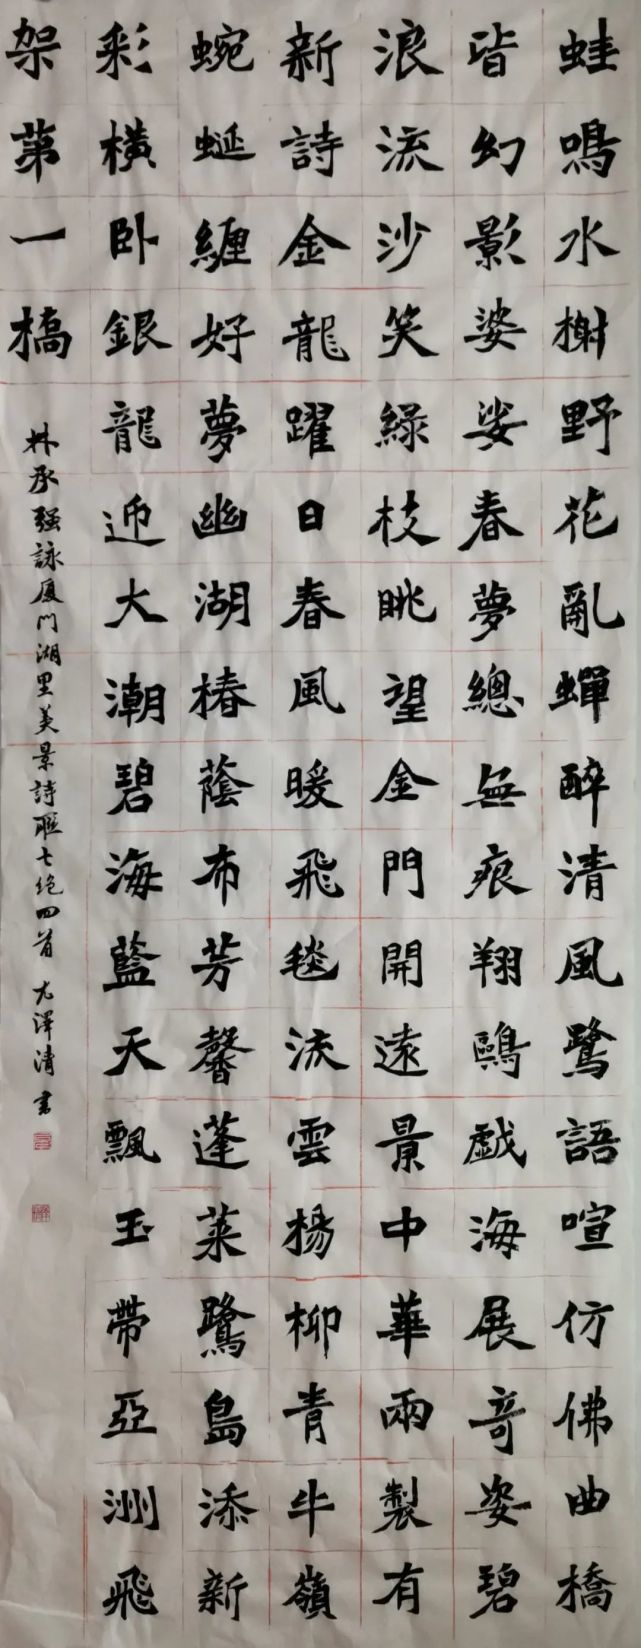 蛙鳴水榭野花亂蟬醉清風鷺語喧仿佛曲橋
皆幻影婆娑春夢總無痕翔鷗戯海展奇姿碧
浪流沙笑綠枝眺望金門開遠景中華兩製有
新詩金龍躍日春風暖飛毯流雲楊柳青牛嶺
蜿蜒纏好夢幽湖椿蔭布芳馨蓬萊鷺島添新
彩橫卧銀龍迎大潮碧海藍天飄玉帶亞洲飛
架第一橋
林承强詠厦門湖里美景詩聯七絶四首 尤澤清書